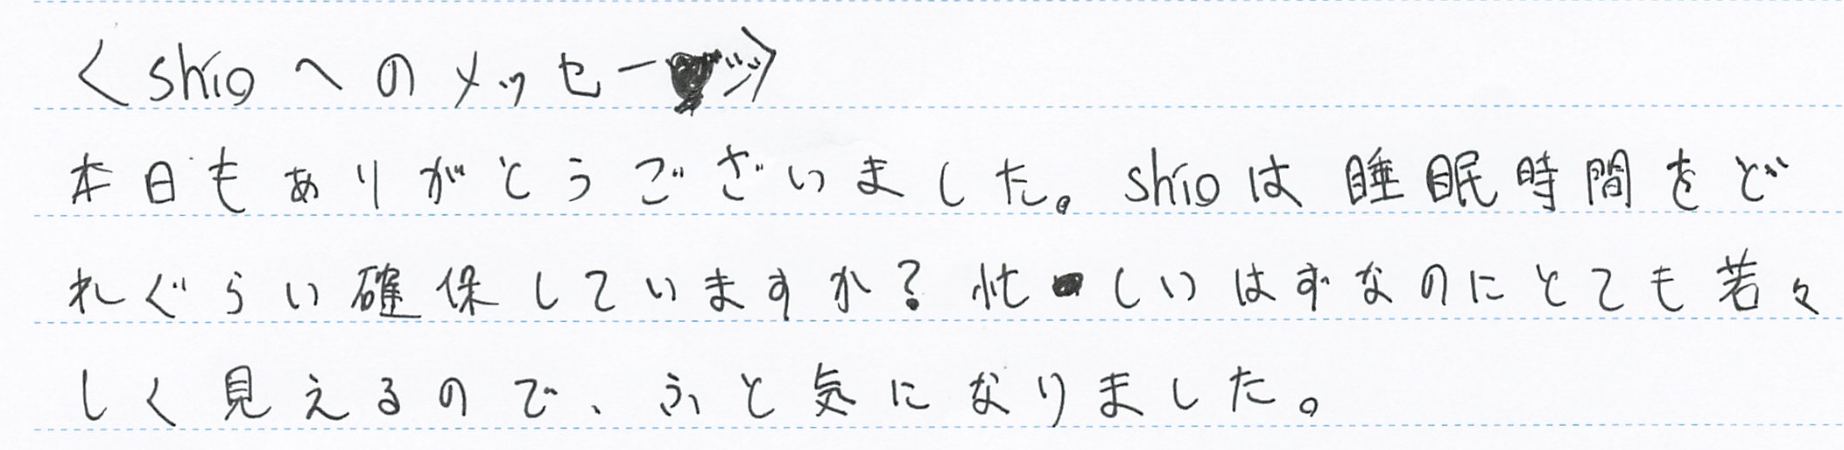 <shioへのメッセージ>
本日もありがとうございました。shioは睡眠時間をど
れぐらい確保していますか?忙しいはずなのにとても若々
しく見えるので、ふと気になりました。